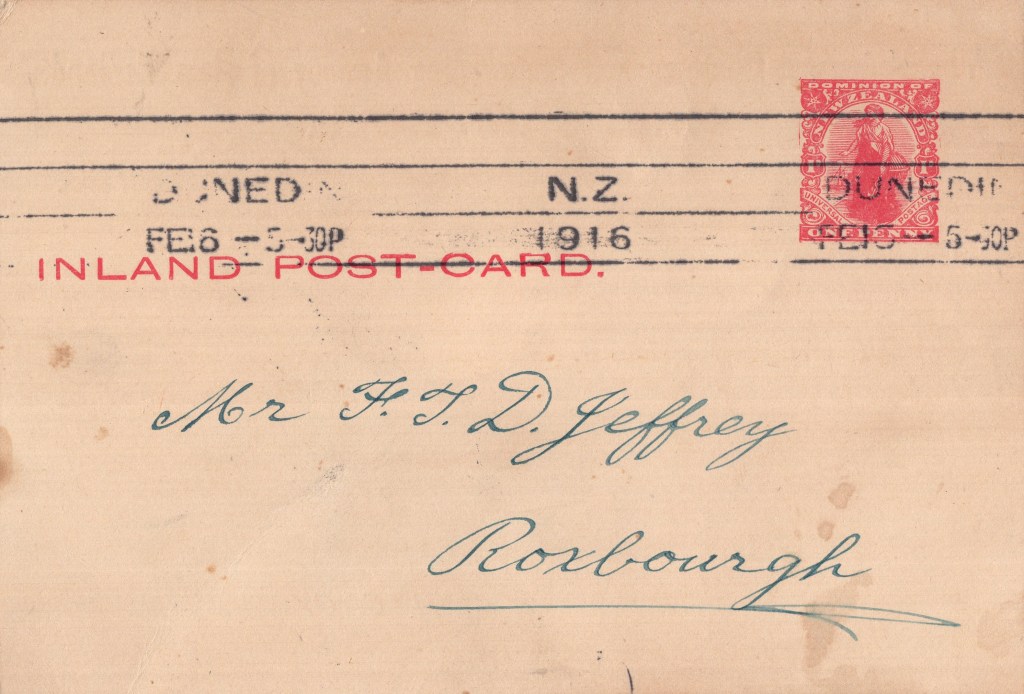 DOMINION OF
NEW ZEALAND
1 1
UNIVERSAL POSTAGE
ONE PENNY
DUNEDIN N.Z. DUNEDIN
FE 6 - 5-30P 1916 FE 6 - 5-30P
INLAND POST-CARD.
Mr F. T. D. Jeffrey
Roxbourgh